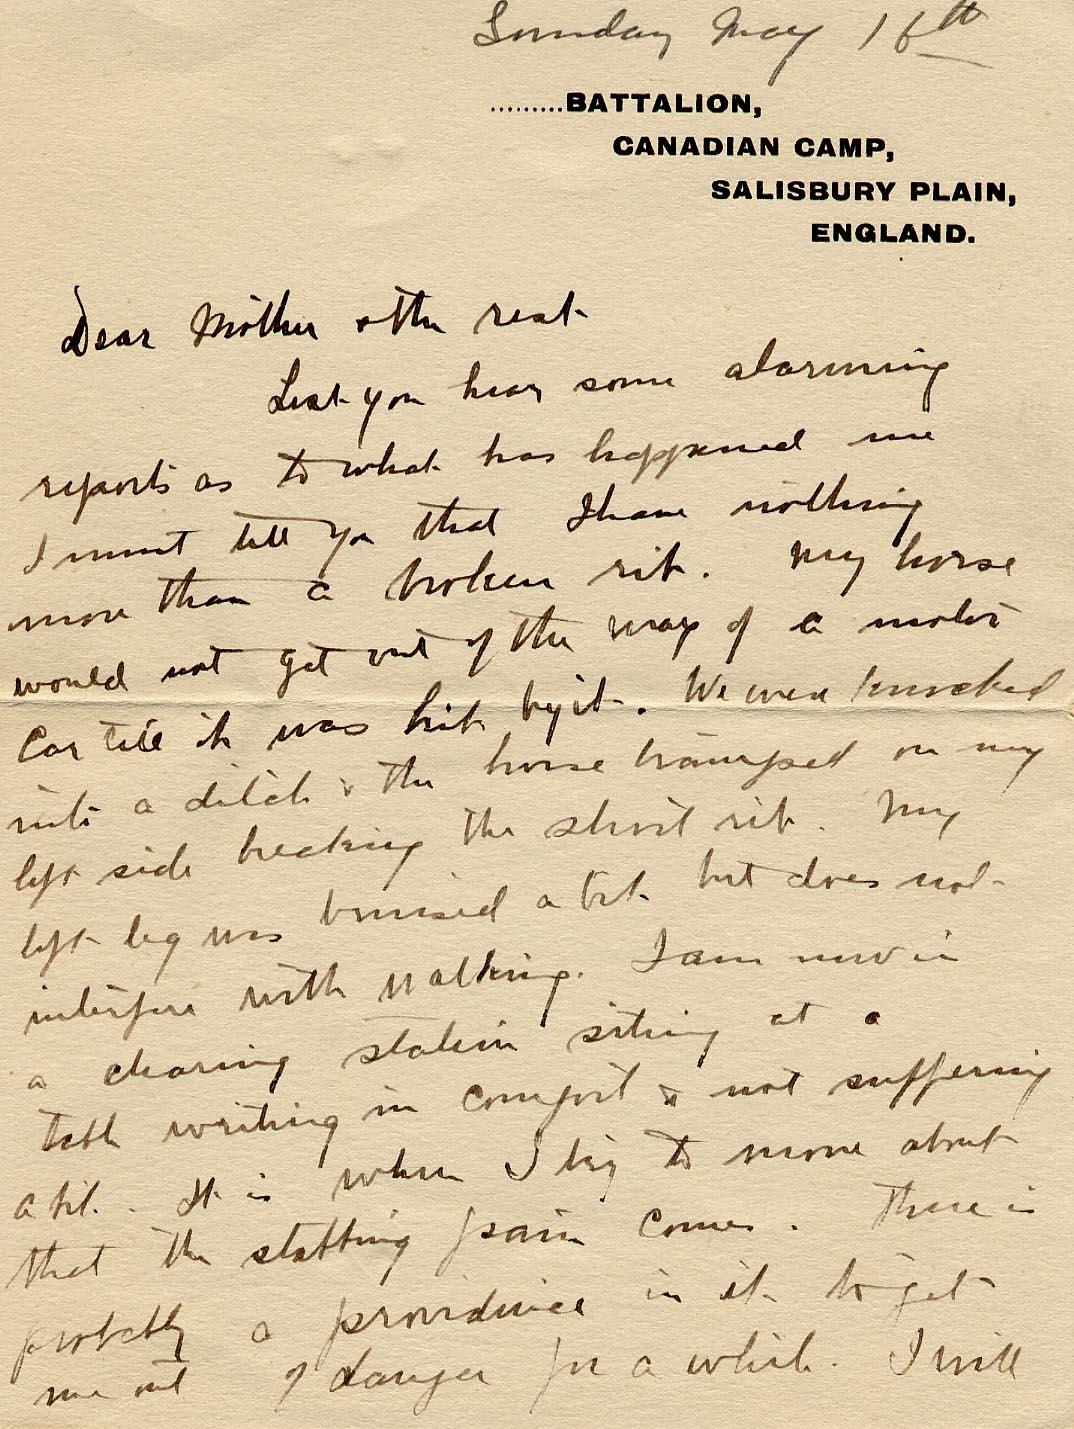 Sunday May 16th
.........BATTALION,
CANADIAN CAMP,
SALISBURY PLAIN,
ENGLAND.
Dear Mother & the rest
Lest you hear some alarming
reports as to what has happened me
I must tell you that I have nothing
more than a broken rib. My horse
would not get out of the way of a motor
car till it was hit by it. We were knocked
into a ditch & the horse tramped on my
left side breaking the short rib. My
left leg was bruised a bit but does not
interfere with walking. I am now in
a clearing station sitting at a
table writing in comfort & not suffering
a bit. It is when I try to move about
that the stabbing pain comes. There is
probably a providence in it to get
me out of danger for a while. I will